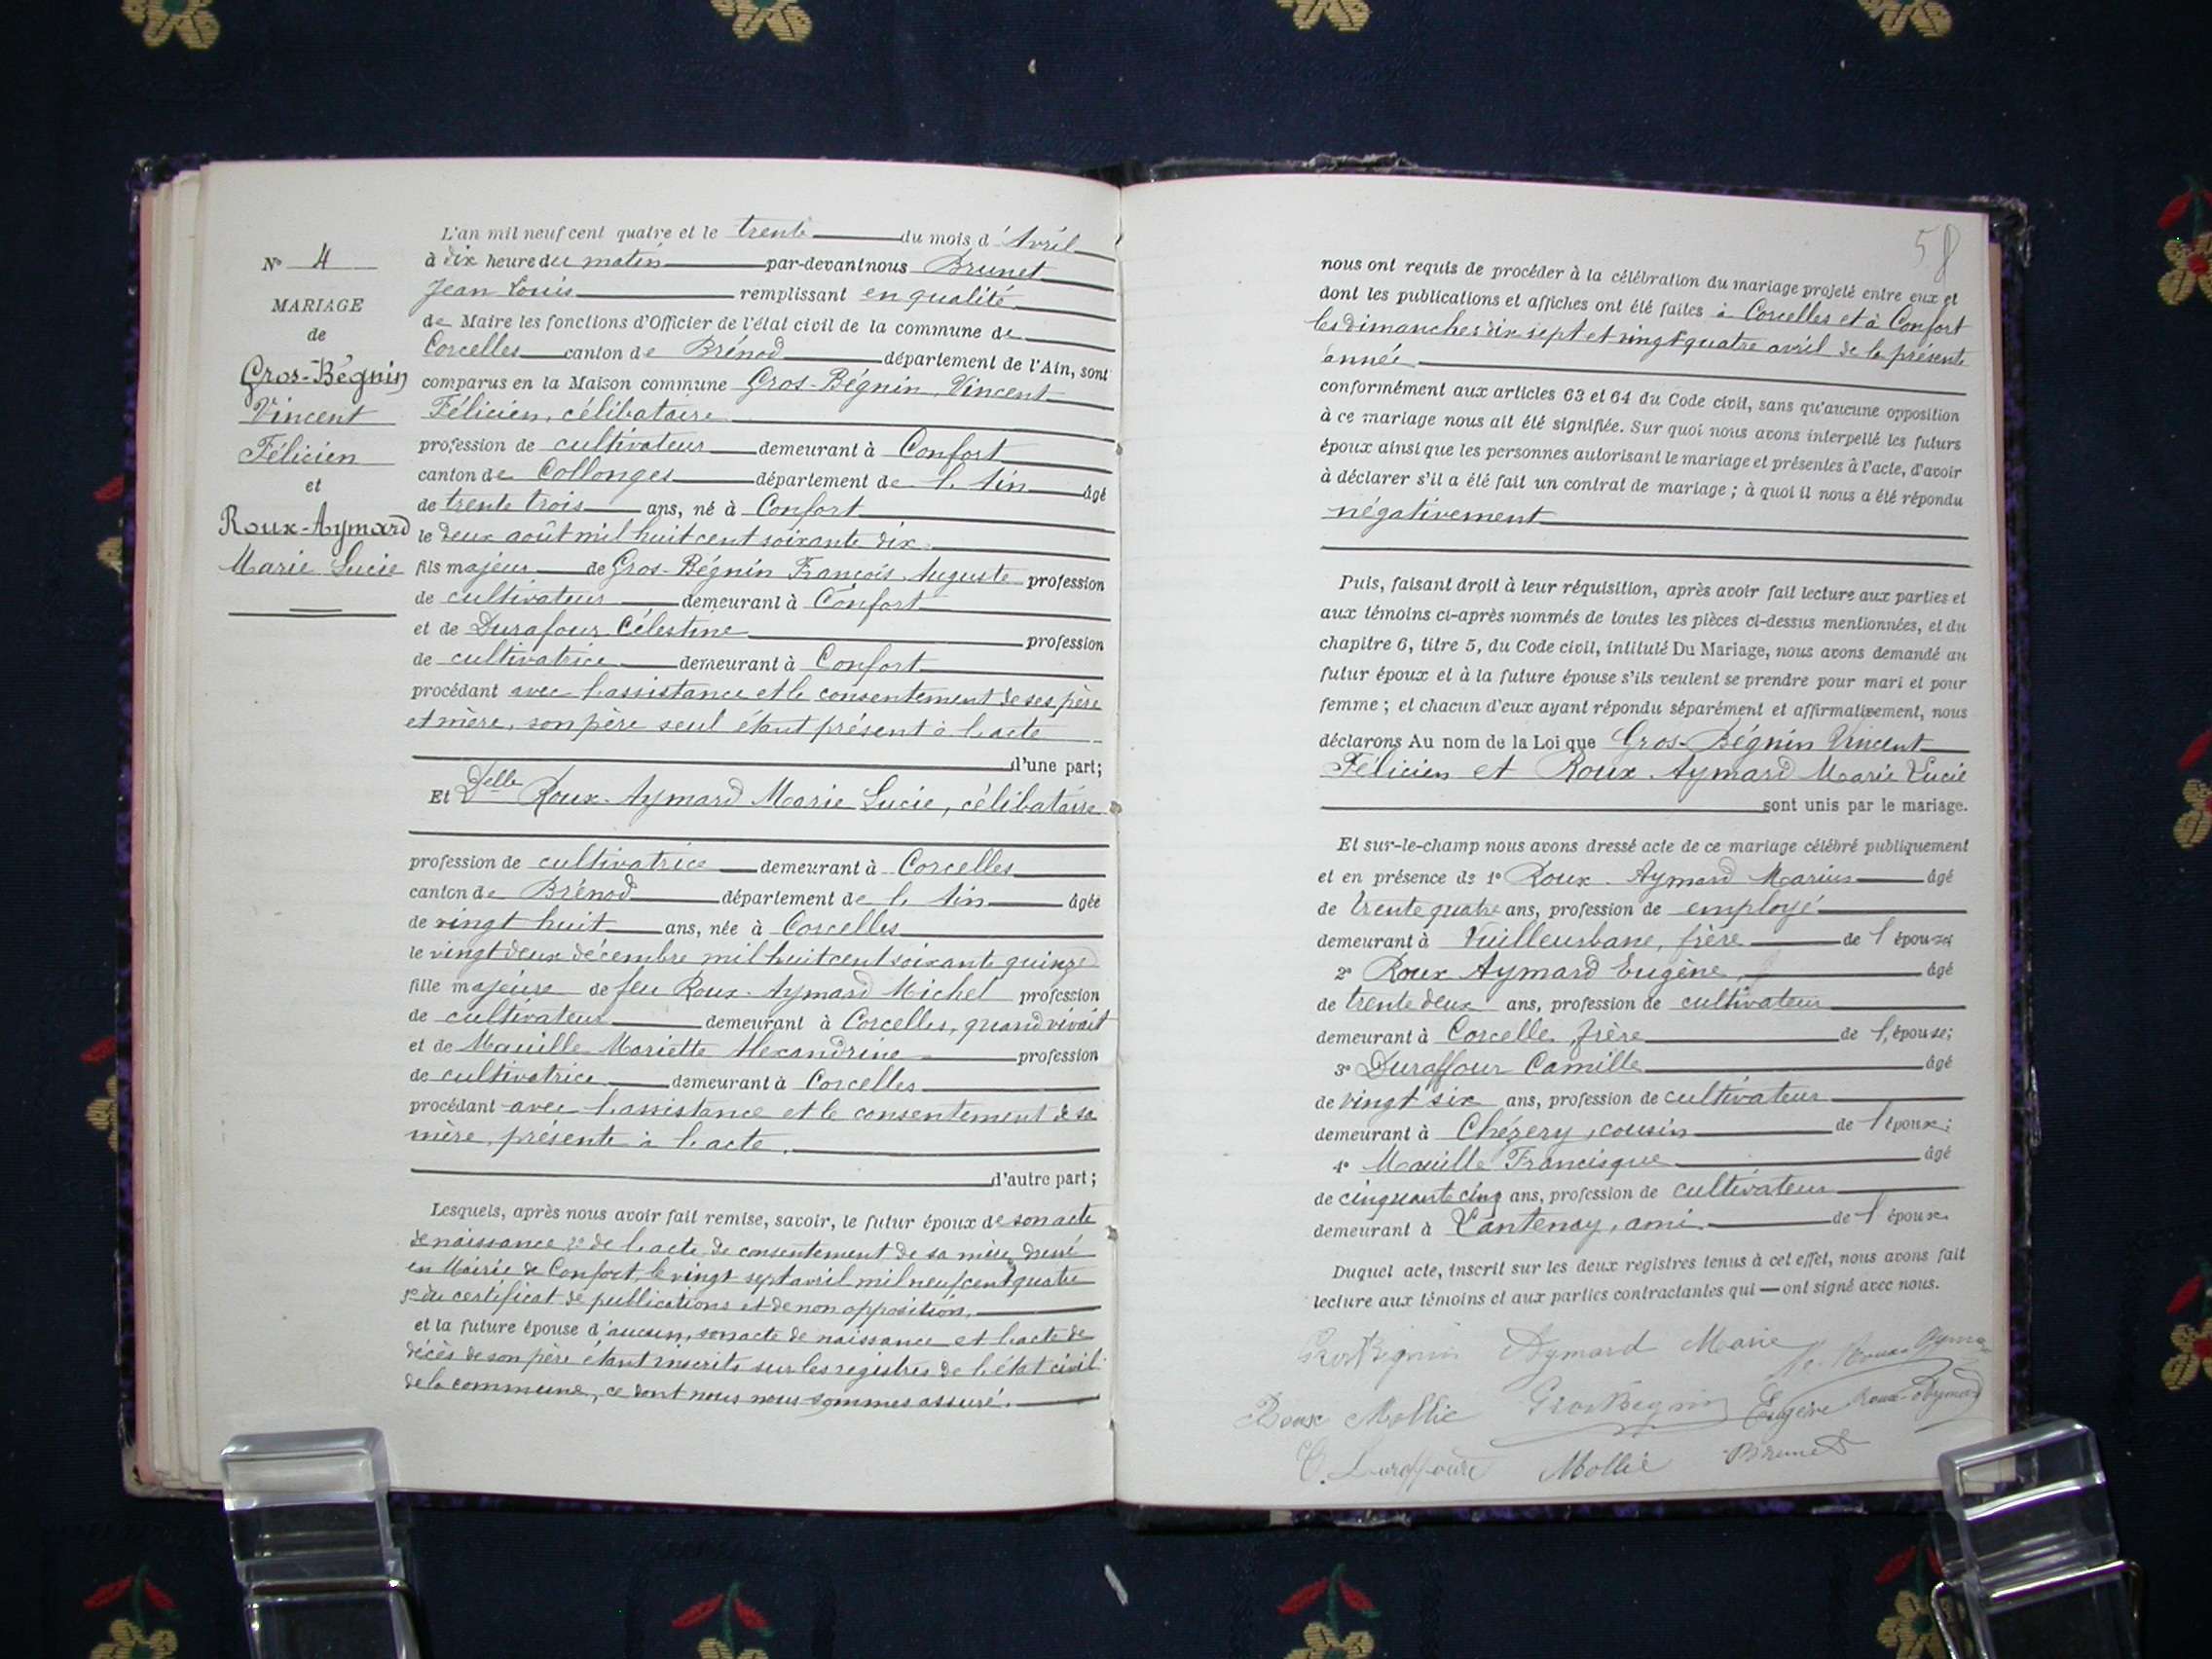 N° 4
MARIAGE
de
Gros-Bégnin
Vincent
Félicien
et
Roux-Aymard
Marie Lucie
L'an mil neuf cent quatre et le trente du mois d'Avril
à dix heure du matin par-devant nous Brunet
Jean Louis remplissant en qualité
de Maire les fonctions d'Officier de l'état civil de la commune de
Corcelles canton de Brénod département de l'Ain, sont
comparus en la Maison commune Gros-Bégnin, Vincent
Félicien, célibataire
profession de cultivateur demeurant à Confort
canton de Collonges département de l'Ain âgé
de trente trois ans, né à Confort
le deux août mil huit cent soixante dix
fils majeur de Gros-Bégnin François Auguste profession
de cultivateur demeurant à Confort
et de Durafour Célestine profession
de cultivatrice demeurant à Confort
procédant avec l'assistance et le consentement de ses père
et mère, son père seul étant présent à l'acte
d'une part;
Et Delle Roux-Aymard Marie Lucie, célibataire
profession de cultivatrice demeurant à Corcelles
canton de Brénod département de l'Ain âgée
de vingt huit ans, née à Corcelles
le vingt deux décembre mil huit cent soixante quinze
fille majeure de feu Roux-Aymard Michel profession
de cultivateur demeurant à Corcelles, quand vivait
et de Mauille Mariette Alexandrine profession
de cultivatrice demeurant à Corcelles
procédant avec l'assistance et le consentement de sa
mère, présente à l'acte.
d'autre part;
Lesquels, après nous avoir fait remise, savoir, le futur époux de son acte
de naissance, 2° de l'acte de consentement de sa mère dressé
en Mairie de Confort, le vingt sept avril mil neuf cent quatre
3° du certificat de publications et de non opposition.
et la future épouse d'aucun, son acte de naissance et l'acte de
décès de son père étant inscrits sur les registres de l'état civil
de la commune, ce dont nous nous sommes assuré.
58
nous ont requis de procéder à la célébration du mariage projeté entre eux et
dont les publications et affiches ont été faites à Corcelles et à Confort
les dimanches dix sept et vingt quatre avril de la présente
année
conformément aux articles 63 et 64 du Code civil, sans qu'aucune opposition
à ce mariage nous ait été signifiée. Sur quoi nous avons interpellé les futurs
époux ainsi que les personnes autorisant le mariage et présentes à l'acte, d'avoir
à déclarer s'il a été fait un contrat de mariage; à quoi il nous a été répondu
négativement
Puis, faisant droit à leur réquisition, après avoir fait lecture aux parties et
aux témoins ci-après nommés de toutes les pièces ci-dessus mentionnées, et du
chapitre 6, titre 5, du Code civil, intitulé Du Mariage, nous avons demandé au
futur époux et à la future épouse s'ils veulent se prendre pour mari et pour
femme; et chacun d'eux ayant répondu séparément et affirmativement, nous
déclarons Au nom de la Loi que Gros-Bégnin Vincent
Félicien et Roux-Aymard Marie Lucie
sont unis par le mariage.
Et sur-le-champ nous avons dressé acte de ce mariage célébré publiquement
et en présence de 1° Roux-Aymard Marius âgé
de trente quatre ans, profession de employé
demeurant à Vuilleurbane, frère de l'épouse
2° Roux Aymard Eugène, âgé
de trente deux ans, profession de cultivateur
demeurant à Corcelle, frère de l'épouse;
3° Duraffour Camille âgé
de vingt six ans, profession de cultivateur
demeurant à Chézery, cousin de l'époux;
4° Mauille Francisque âgé
de cinquante cinq ans, profession de cultivateur
demeurant à Lantenay, ami de l'époux
Duquel acte, inscrit sur les deux registres tenus à cet effet, nous avons fait
lecture aux témoins et aux parties contractantes qui — ont signé avec nous.
GrosBegnin Aymard Marie Roux-Ayma
Roux Mollie GrosBegnin Eugène Roux-Aymard
C. Duraffour Mollie Brunet